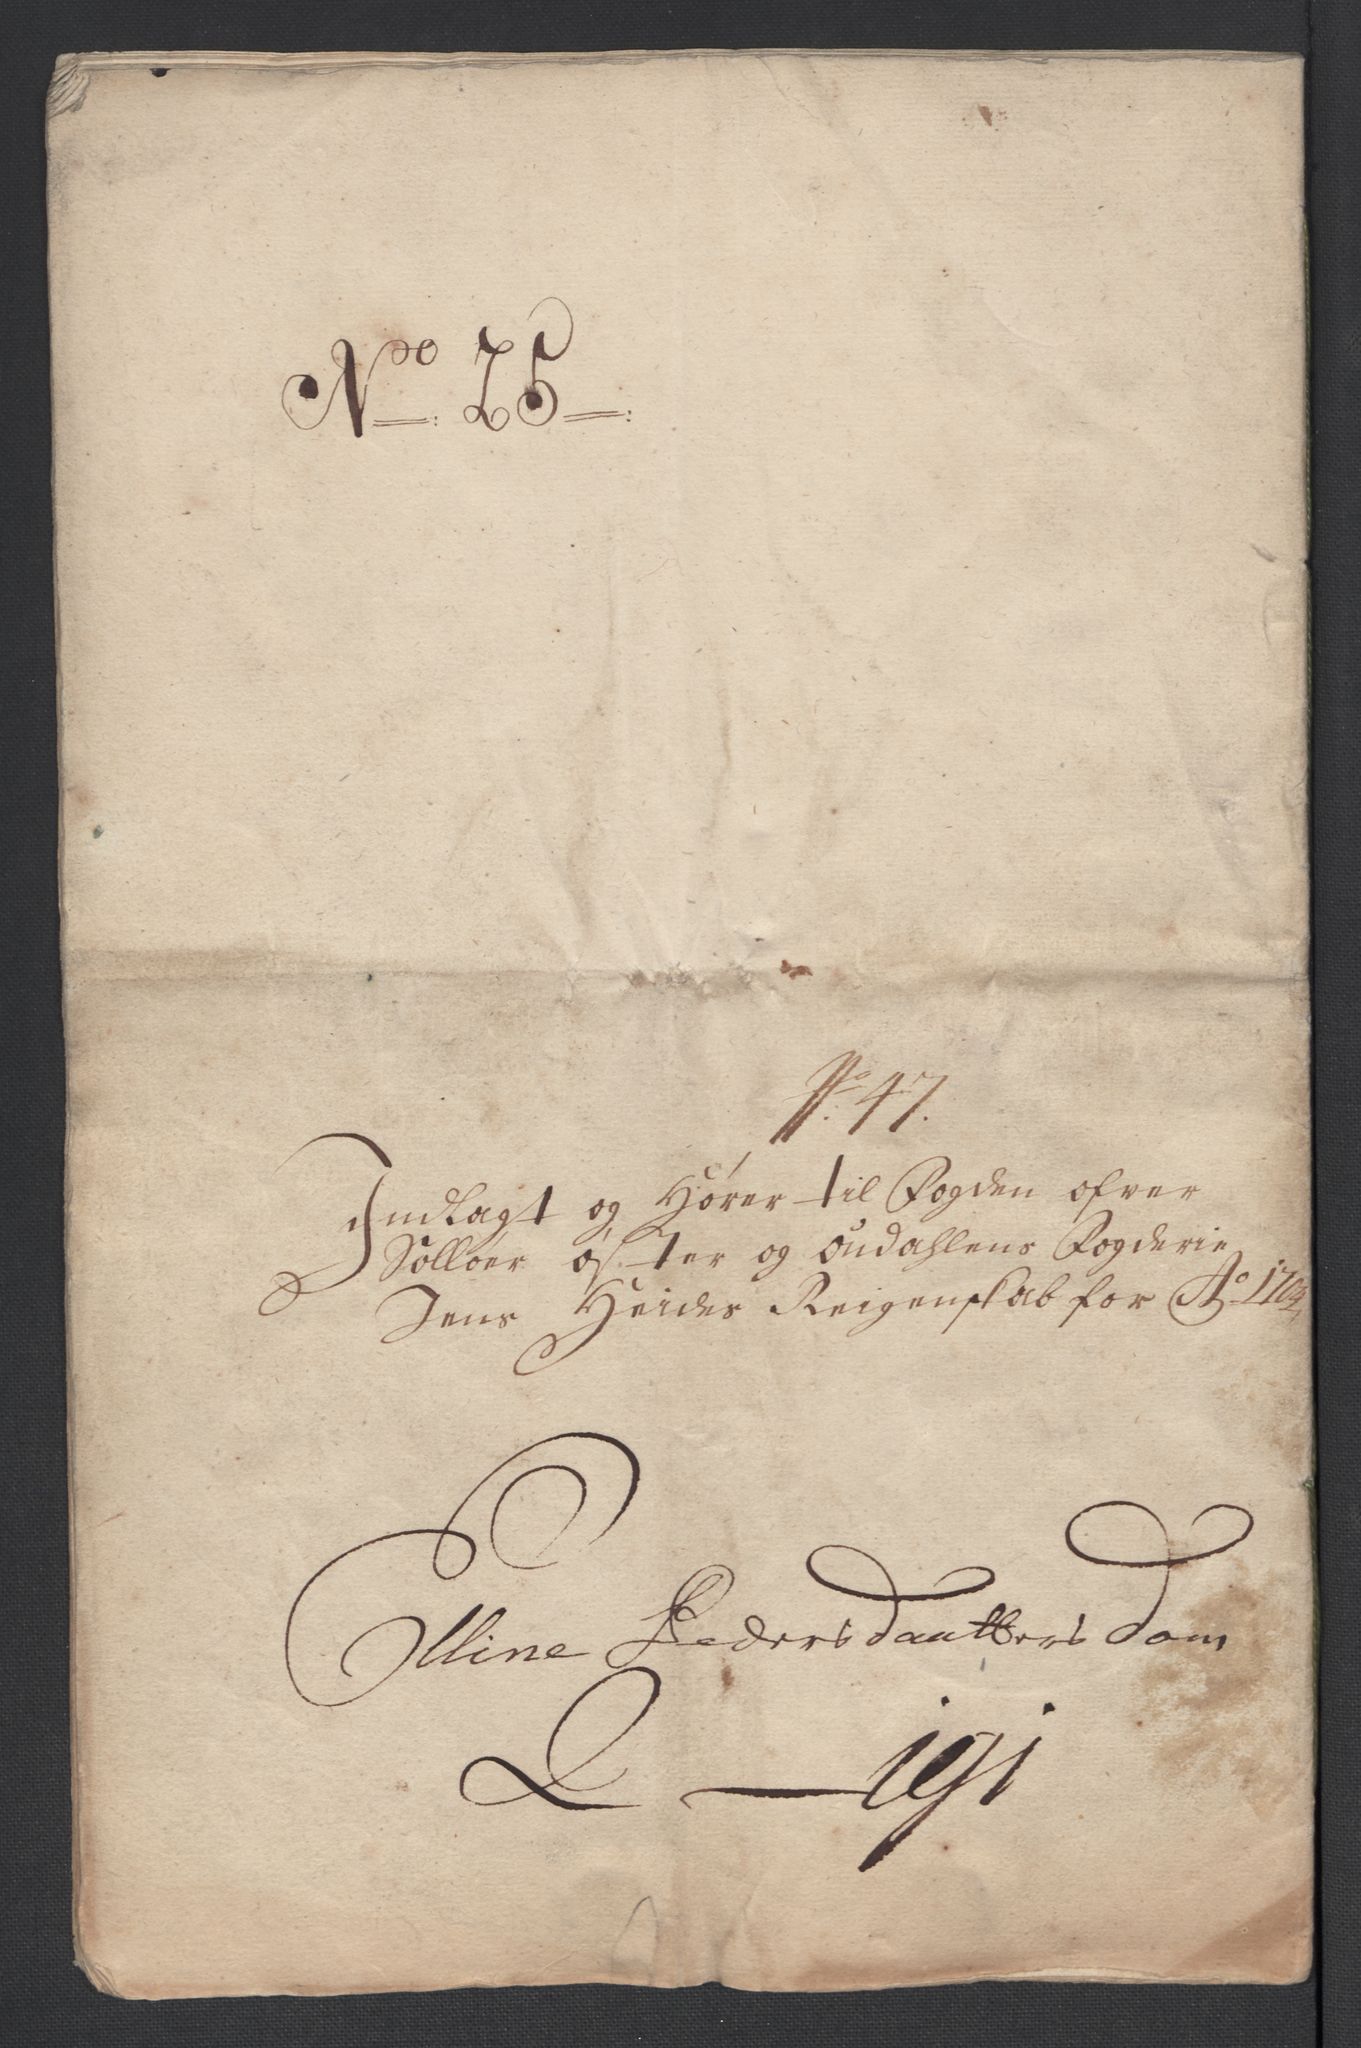 No 25
No 47.
Indlagt og Hører til Fogden ofver
Solløer Øster og Oudahlens Fogderie
Jens Heides Reigenskab for Ao 1704
Elline Peders dautters dom
L